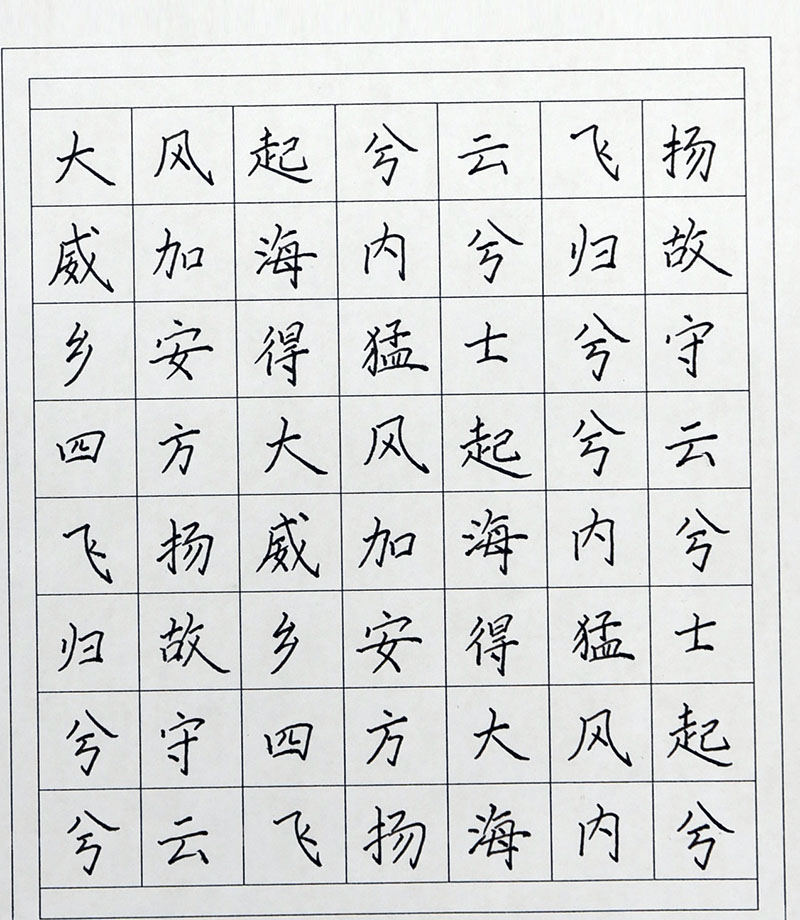 大风起兮云飞扬
威加海内兮归故
乡安得猛士兮守
四方大风起兮云
飞扬威加海内兮
归故乡安得猛士
兮守四方大风起
兮云飞扬海内兮